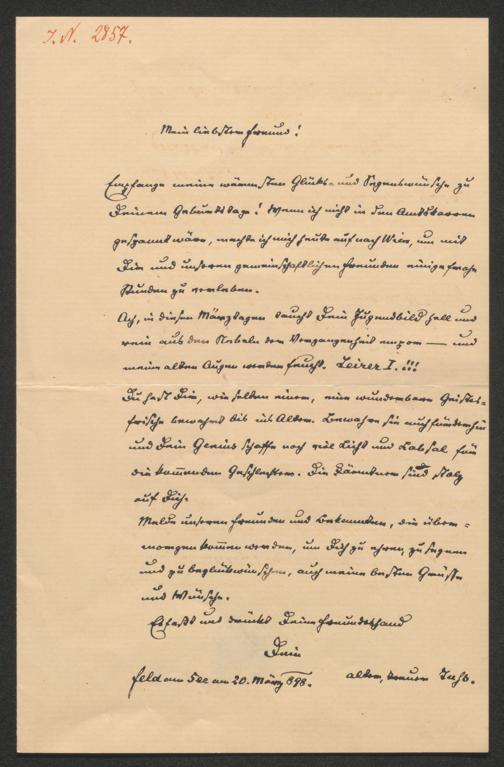 I. N. 2857.
Mein liebster Freund!
Empfange meine wärmsten Glücks- und Segenswünsche zu
Deinem Geburtstage! Wenn ich nicht in den Amtskarren
gespannt wäre, machte ich mich heute auf nach Wien, um mit
Dir und unseren gemeinschaftlichen Freunden einige frohe
Stunden zu verleben.
Ach, in diesen Märztagen taucht Dein Jugendbild hell und
rein aus den Nebeln der Vergangenheit empor — und
meine alten Augen werden feucht. I.!!!
Du hast Dir, wie selten einer, eine wunderbare Geistes-
frische bewahrt bis ins Alter. Bewahre sie auch fürderhin
und Dein Genius schaffe noch viel Licht und Labsal für
die kommenden Geschlechter. Die Kärntner sind stolz
auf Dich.
Melde unseren Freunden und Bekannten, die über-
morgen kommen werden, um Dich zu ehren, zu segnen
und zu beglückwünschen, auch meine besten Grüße
und Wünsche.
Es faßt und drückt Deine Freundeshand
Dein
alter, treuer
Feld am See am 20. März 898.